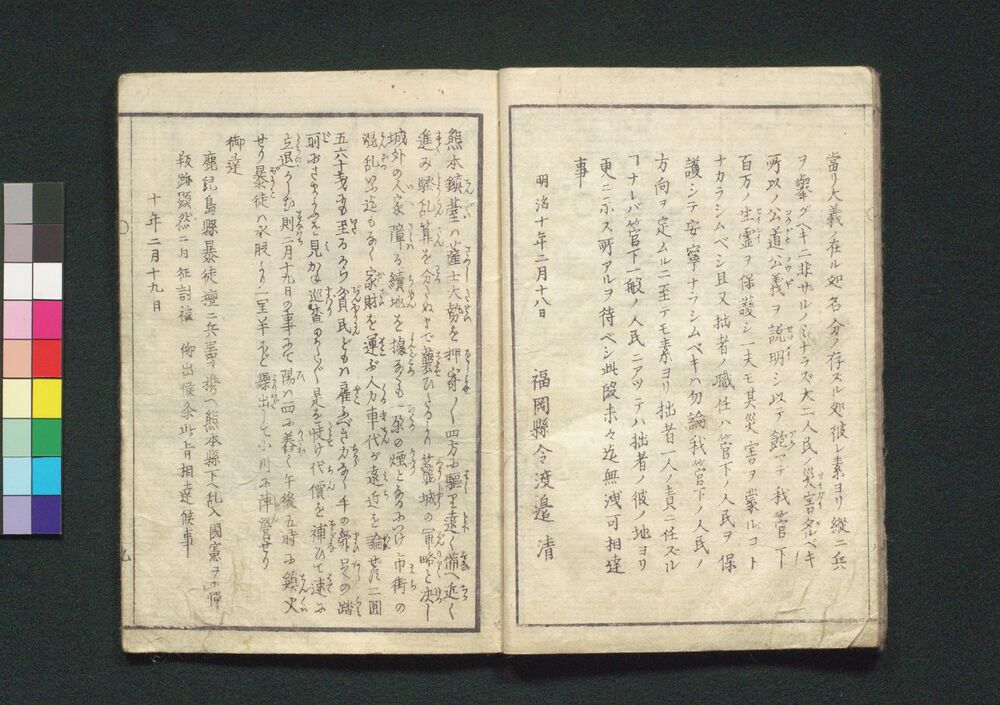 當リ大義ノ在ル処名分ノ存スル処彼レ素ヨリ縦ニ兵
ヲ擧グベキニ非サルノミナラズ大ニ人民ノ災害タルベキ
所以ノ公道公義ヲ説明シ以テ飽マテ我管下
百万ノ生霊ヲ保護シ一夫モ其災害ヲ蒙ルコト
ナカラシムベシ且又拙者ノ職任ハ管下ノ人民ヲ保
護シテ安寧ナラシムベキハ勿論我管下ノ人民ノ
方向ヲ定ムルニ至テモ素ヨリ拙者一人ノ責ニ任ズル
ヿナレバ管下一般ノ人民ニアツテハ拙者ノ彼ノ地ヨリ
更ニ示ス所アルヲ待ベシ此段末々迄無洩可相達
事
明治十年二月十八日
福岡縣令渡邉清
熊本鎮䑓ハ薩士大勢を押寄んと四方に駆里遠く備へ近く
進み騒乱算を分たぬまで襲ひたるより籠城の軍略と决し
城外の人家障る續地を據なくも一朶の煙となるにつけ市街の
混乱いふ迄もなく家財を運ぶ人力車代が遠近を論せず二圓
五六十銭にも至るから貧民どもハ雇ふべき力なく手の舞足の踏
所
立退かしむ則二月十九日の事にて陽ハ西に暮く午後五時に鎮火
せり暴徒ハ水股より一里半ほど繰出して小川に陣營せり
御達
鹿児島縣暴徒擅ニ兵器ヲ携ヘ熊本縣下ヘ乱入國憲ヲ不憚
叛跡顕然ニ付征討被 仰出候条此旨相達候事
十年二月十九日
九